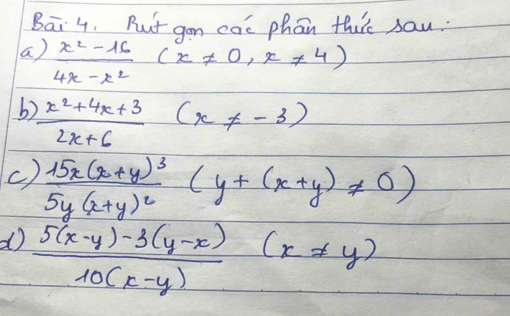 Bài 4. Rút gọn các phân thức sau:
a) (x² - 16)/(4x - x²) (x ≠ 0, x ≠ 4)
b) (x² + 4x + 3)/(2x + 6) (x ≠ -3)
c) (15x(x+y)³)/(5y(x+y)²) (y + (x+y) ≠ 0)
d) (5(x-y) - 3(y-x))/(10(x-y)) (x ≠ y)